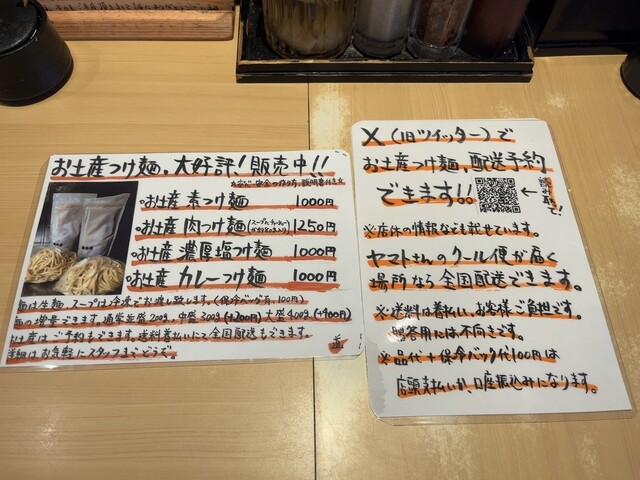 お土産つけ麺、大好評!販売中!!
お土産 素つけ麺 1000円
お土産 肉つけ麺 1250円
お土産 濃厚塩つけ麺 1000円
お土産 カレーつけ麺 1000円
麺は生麺 スープは冷凍でお渡し致します。(保冷バッグ有、100円)
麺の増量できます。通常並盛200g、中盛300g(+200円)大盛400g(+400円)
お土産はご予約もできます。送料着払いにて全国配送もできます。
詳細はお気軽にスタッフまでどうぞ。
X(旧ツイッター)で
お土産つけ麺、配送予約
できます!! ← 読み取って!
※店休の情報なども載せています。
ヤマトさんのクール便が届く
場所なら全国配送できます。
※送料は着払い、お客様ご負担です。
贈答用には不向きです。
※品代+保冷バック代100円は
店頭支払いか、口座振込みになります。